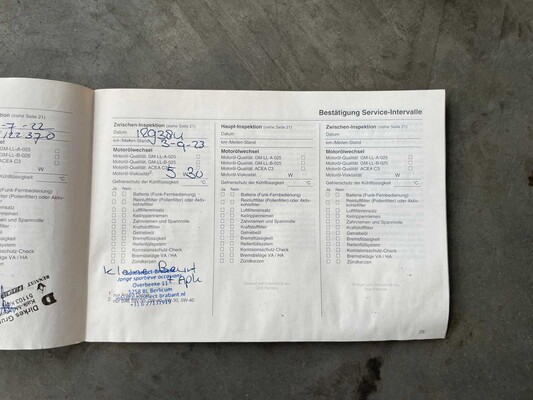 Bestätigung Service-Intervalle
(siehe Seite 21)
-7-22
GM-LL-A-025
GM-LL-B-025
ACEA C3
W
°C
Zwischen-Inspektion (siehe Seite 21)
Datum
km-/Meilen-Stand 3-9-23
Motorölwechsel
Motoröl-Qualität: GM-LL-A-025
Motoröl-Qualität: GM-LL-B-025
Motoröl-Qualität: ACEA C3
Motoröl-Viskosität 5 W 30
Gefrierschutz der Kühlflüssigkeit °C
Ja Nein
Batterie (Funk-Fernbedienung)
Reinluftfilter (Pollenfilter) oder Aktivkohlefilter
Luftfiltereinsatz
Keilrippenriemen
Zahnriemen und Spannrolle
Kraftstofffilter
Getriebeöl
Bremsflüssigkeit
Reifenfüllsystem
Korrosionsschutz-Check
Bremsbeläge VA / HA
Zündkerzen
Kleine Beurt
+ Apk
jonge sportieve occasions
Overbeeke 11
5258 BL Berlicum
Haupt-Inspektion (siehe Seite 21)
Datum
km-/Meilen-Stand
Motorölwechsel
Motoröl-Qualität: GM-LL-A-025
Motoröl-Qualität: GM-LL-B-025
Motoröl-Qualität: ACEA C3
Motoröl-Viskosität W
Gefrierschutz der Kühlflüssigkeit °C
Ja Nein
Batterie (Funk-Fernbedienung)
Reinluftfilter (Pollenfilter) oder Aktivkohlefilter
Luftfiltereinsatz
Keilrippenriemen
Zahnriemen und Spannrolle
Kraftstofffilter
Getriebeöl
Bremsflüssigkeit
Reifenfüllsystem
Korrosionsschutz-Check
Bremsbeläge VA / HA
Zündkerzen
Zwischen-Inspektion (siehe Seite 21)
Datum
km-/Meilen-Stand
Motorölwechsel
Motoröl-Qualität: GM-LL-A-025
Motoröl-Qualität: GM-LL-B-025
Motoröl-Qualität: ACEA C3
Motoröl-Viskosität W
Gefrierschutz der Kühlflüssigkeit °C
Ja Nein
Batterie (Funk-Fernbedienung)
Reinluftfilter (Pollenfilter) oder Aktivkohlefilter
Luftfiltereinsatz
Keilrippenriemen
Zahnriemen und Spannrolle
Kraftstofffilter
Getriebeöl
Bremsflüssigkeit
Reifenfüllsystem
Korrosionsschutz-Check
Bremsbeläge VA / HA
Zündkerzen